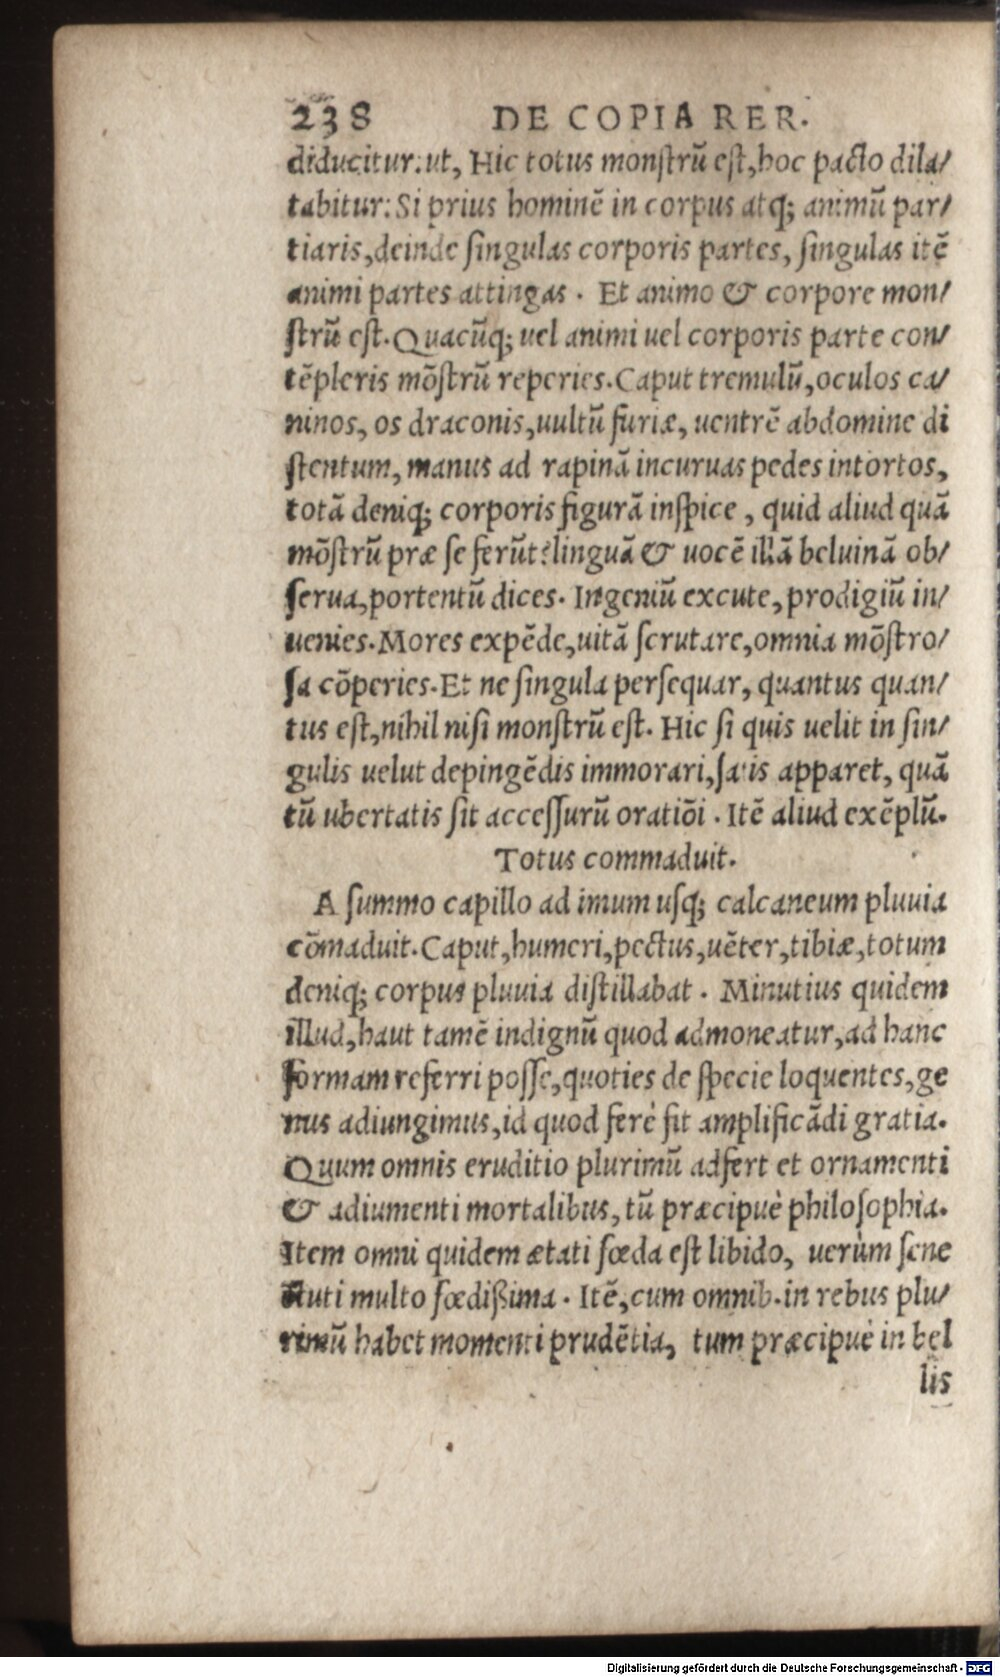 238 DE COPIA RER.
diducitur: ut, Hic totus monstrũ est, hoc pacto dila/
tabitur: Si prius hominẽ in corpus atq; animũ par/
tiaris, deinde singulas corporis partes, singulas itẽ
animi partes attingas. Et animo & corpore mon/
strũ est. Quacũq; uel animi uel corporis parte con/
tẽpleris mõstrũ reperies. Caput tremulũ, oculos ca/
ninos, os draconis, uultũ furiæ, uentrẽ abdomine di
stentum, manus ad rapinã incuruas pedes intortos,
totã deniq; corporis figurã inspice, quid aliud quã
mõstrũ præ se ferũt? linguã & uocẽ illã beluinã ob/
serua, portentũ dices. Ingeniũ excute, prodigiũ in/
uenies. Mores expẽde, uitã scrutare, omnia mõstro/
sa cõperies. Et ne singula persequar, quantus quan/
tus est, nihil nisi monstrũ est. Hic si quis uelit in sin/
gulis uelut depingẽdis immorari, satis apparet, quã
tũ ubertatis sit accessurũ oratiõi. Itẽ aliud exẽplũ.
Totus commaduit.
A summo capillo ad imum usq; calcaneum pluuia
cõmaduit. Caput, humeri, pectus, uẽter, tibiæ, totum
deniq; corpus pluuia distillabat. Minutius quidem
illud, haut tamẽ indignũ quod admoneatur, ad hanc
formam referri posse, quoties de specie loquentes, ge
nus adiungimus, id quod ferè fit amplificãdi gratia.
Quum omnis eruditio plurimũ adfert et ornamenti
& adiumenti mortalibus, tũ præcipuè philosophia.
Item omni quidem ætati fœda est libido, uerùm sene
ctuti multo fœdißima. Itẽ, cum omnib. in rebus plu/
rimũ habet momenti prudẽtia, tum præcipuè in bel
lis
Digitalisierung gefördert durch die Deutsche Forschungsgemeinschaft - DFG